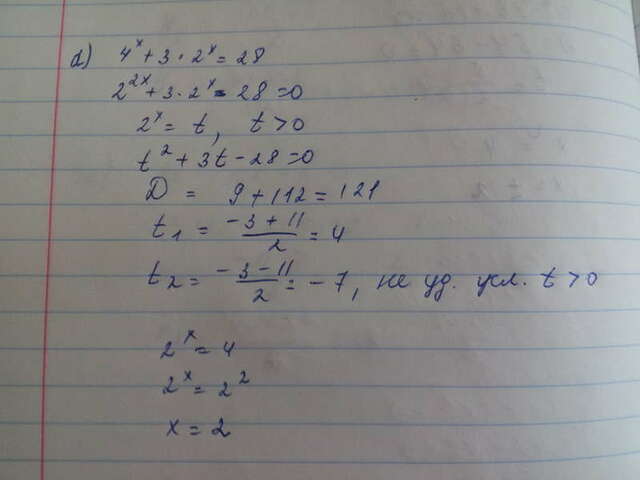 d) 4^x + 3 · 2^x = 28
2^{2x} + 3 · 2^x - 28 = 0
2^x = t, t > 0
t^2 + 3t - 28 = 0
D = 9 + 112 = 121
t_1 = \frac{-3 + 11}{2} = 4
t_2 = \frac{-3 - 11}{2} = -7, не уд. усл. t > 0
2^x = 4
2^x = 2^2
x = 2